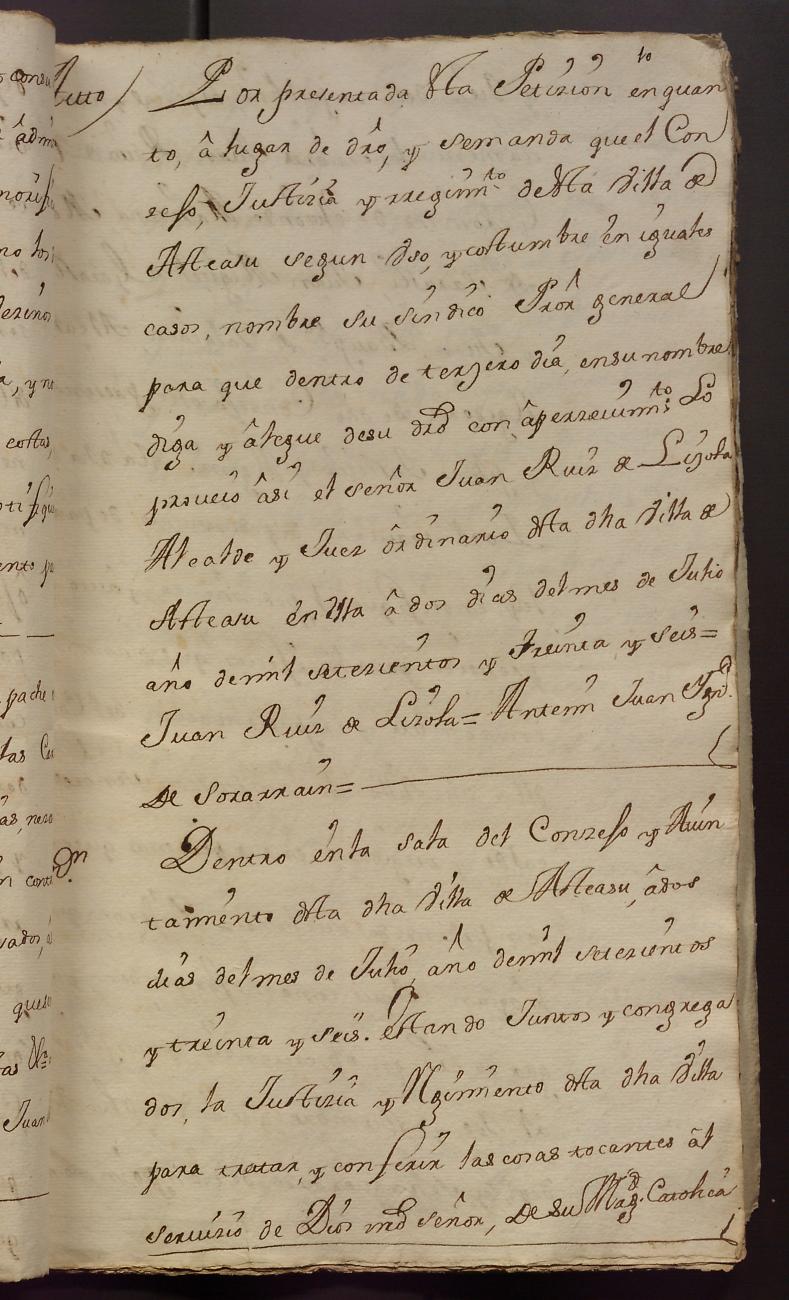 Autto) Por presentada esta Petizion en quan
to, â lugar de dro, y semanda que el Con
zeso, Justizia y rregimto desta Villa de
Asteasu segun Vso, y costumbre en iguales
casos, nombre su sindico Pror general
para que dentro de terzero dia, en su nombre
diga y âlegue desu dro con âperzeuimto: Lo
proueio âsi el señor Juan Ruiz de Lizola
Alcalde y Juez ôrdinario dsta dha Villa de
Asteasu en Illa â dos dias del mes de Julio
año demil setezientos y Treinta y seis=
Juan Ruiz de Lizola= Antemi Juan Ignº.
De Sorarrain=
Dentro enla sala del Conzeso y Aiun
tamiento dsta dha Villa de Asteasu, âdos
dias del mes de Julio, año demil setezientos
y treinta y seis. estando Juntos y congrega
dos, la Justizia y Regimiento dsta dha Villa
para tratar, y conferir las cosas tocantes âl
seruizio de Dios nro señor, De su Magd. Catolica